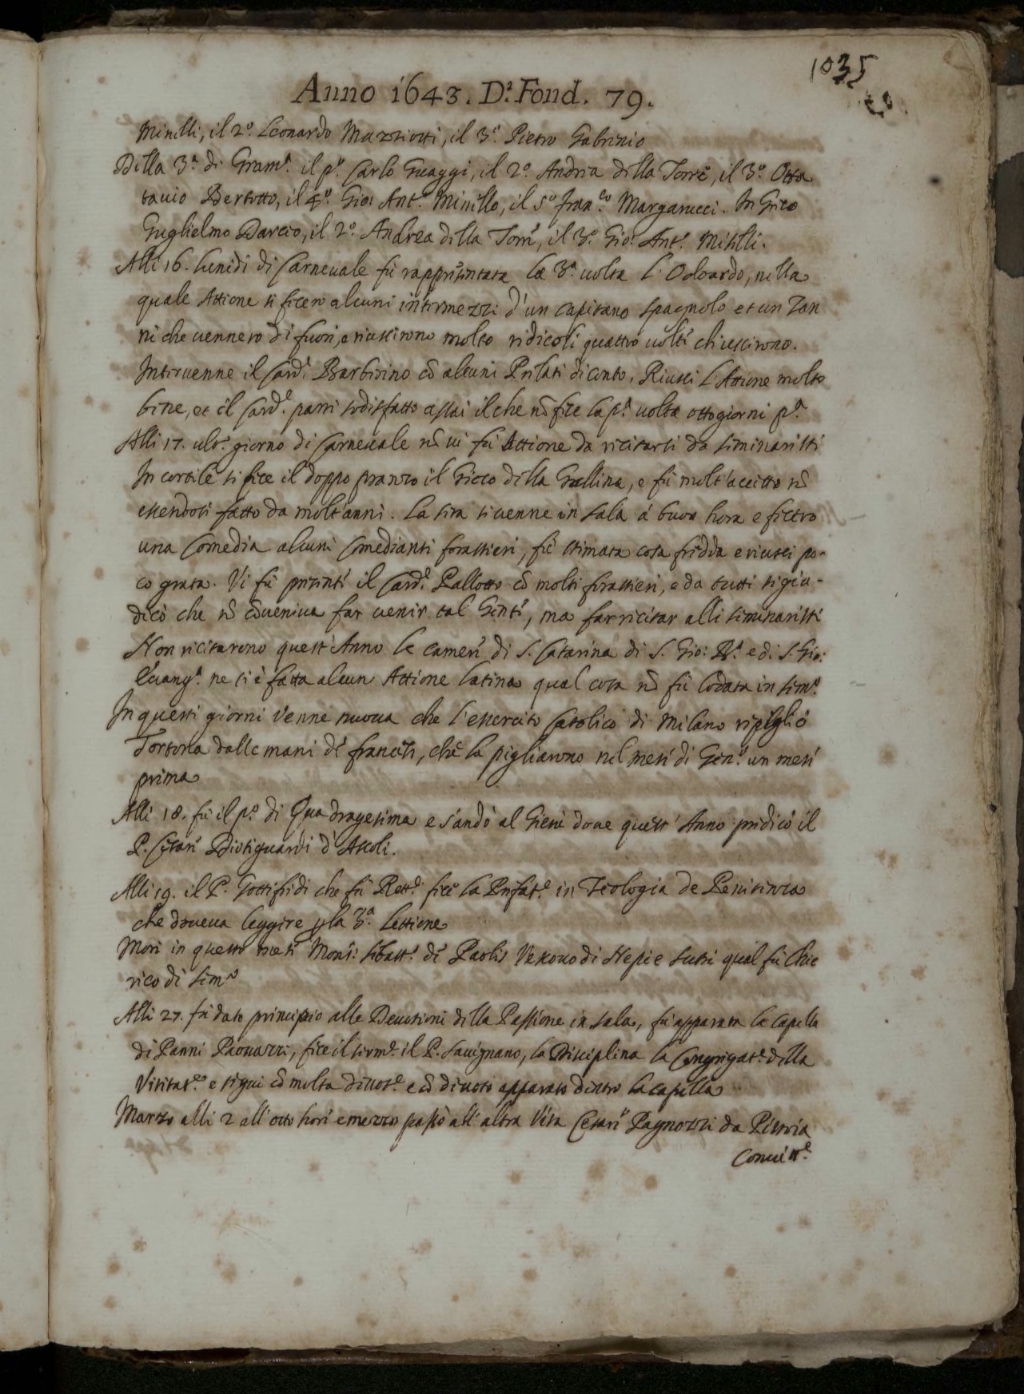 1035
Anno 1643. Dª. Fond. 79.
Minelli, il 2º. Leonardo Mazziotti, il 3º. Pietro Gabrinio
Della 3ª. di Gramª. il pº. Carlo Guaggi, il 2º. Andrea della Torre, il 3º. Otta
tavio Bertotto, il 4º. Gio: Antº. Minillo, il 5º Franco. Margarucci. In Greco
Guglielmo Darcio, il 2º. Andrea della Torre, il 3º. Gio: Antº. Milli.
Alli 16. lunedi di Carnevale fù rappresentata la 3ª. volta l'Odoardo, nella
quale Attione si fecero alcuni intermezzi d'un capitano spagnolo et un Zan
ni che vennero di fuori, e riuscirono molto ridicoli quattro volte ch'uscirono.
Intervenne il Card. Barberino cõ alcuni Prelati di conto. Riuscì l'Attione molto
bene, et il Cardˡᵉ. partì sodisfatto assai il che nõ fece la pª. volta otto giorni pª.
Alli 17. ultº. giorno di Carnevale nõ vi fù Attione da recitarsi da seminaristi
In cortile si fece il doppo pranzo il Gioco della Gallina, e fù molt'accetto nõ
essendosi fatto da molt'anni. La sera si venne in sala à buon hora e fecero
una Comedia alcuni Comedianti forastieri, fù stimata cosa fredda e riuscì po-
co grata. Vi fù presente il Card. Pallotto cõ molti forastieri, e da tutti si giu-
dicò che nõ cõveniva far venir tal Gente, ma far recitar alli seminaristi
Non recitarono quest'Anno le camere di S. Catarina di S. Gio: Bª. e di S. Gio:
Evangª. ne si è fatta alcun Attione latina qual cosa nõ fù lodata in semº.
In questi giorni venne nuova che l'essercito Catolico di Milano ripigliò
Tortona dalle mani de francesi, che la pigliarono nel mese di Genº. un mese
prima
Alli 18. fù il pº. di Quadragesima e s'andò al Giesù dove quest'Anno predicò il
P. Cesare d'Ascoli.
Alli 19. il P. Gottifredi che fù Rettº. fece la Prefatº. in Teologia de Penitentia
che doveva leggere p la 3ª. lettione
Morì in questo mese Monsʳ: Sbattª. de Paolis Vescovo di Nepi e Sutri qual fù Chie
rico di semº
Alli 27. fù dato principio alle Devotioni della Passione in sala, fù apparata la Capella
di Panni Paonazzi, fece il sermº. il P. Savignano, la Disciplina la Congregatº. della
Visitatº. e seguì cõ molta divotº. e cõ divoto apparato dentro la capella
Marzo alli 2 all'otto hore e mezzo passò all'altra Vita Cesare Pagnozzi da Pistoia
Convitᵉ.